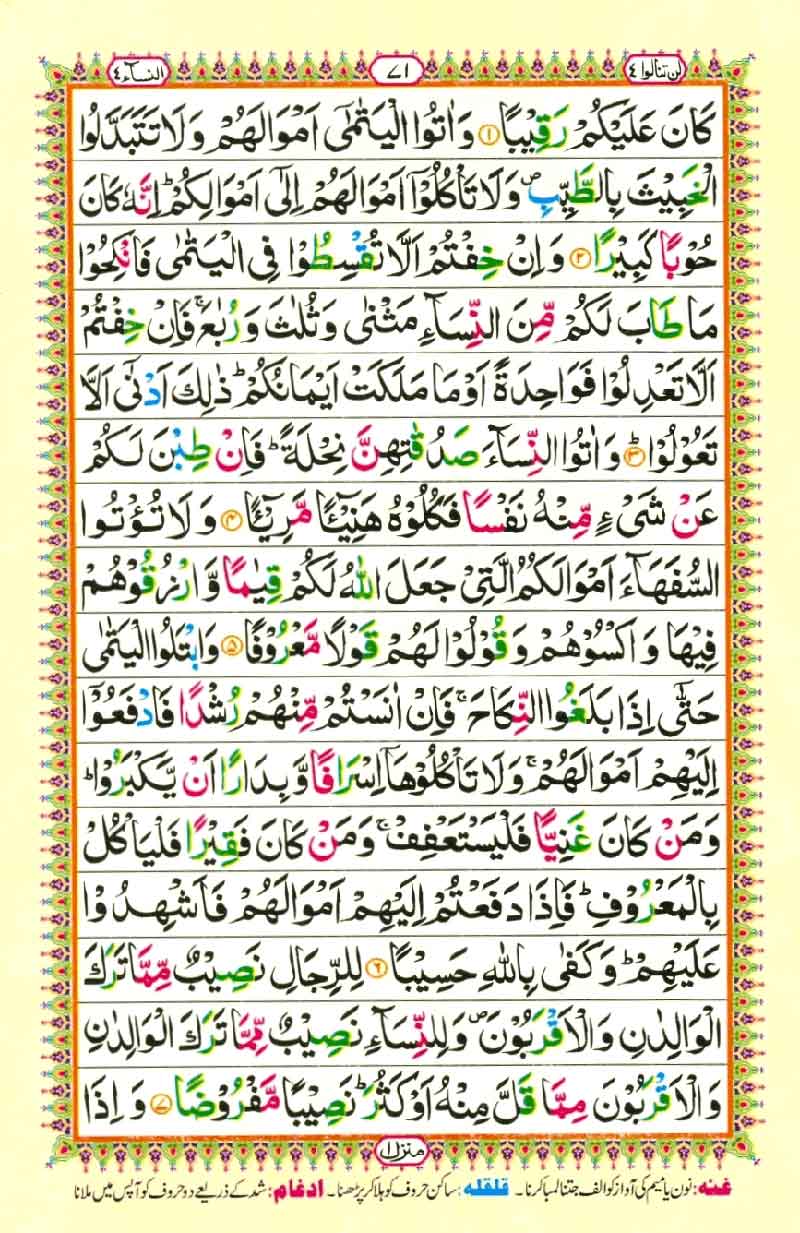 لن تنالوا ٤ ٧١ النسآء ٤
كَانَ عَلَيْكُمْ رَقِيْبًا ۝۱ وَاٰتُوا الْيَتٰمٰۤى اَمْوَالَهُمْ وَلَا تَتَبَدَّلُوا
الْخَبِيْثَ بِالطَّيِّبِ ۪ وَلَا تَاْكُلُوْۤا اَمْوَالَهُمْ اِلٰۤى اَمْوَالِكُمْ ؕ اِنَّهٗ كَانَ
حُوْبًا كَبِيْرًا ۝۲ وَاِنْ خِفْتُمْ اَلَّا تُقْسِطُوْا فِى الْيَتٰمٰى فَانْكِحُوْا
مَا طَابَ لَكُمْ مِّنَ النِّسَآءِ مَثْنٰى وَثُلٰثَ وَرُبٰعَ ۚ فَاِنْ خِفْتُمْ
اَلَّا تَعْدِلُوْا فَوَاحِدَةً اَوْ مَا مَلَكَتْ اَيْمَانُكُمْ ؕ ذٰلِكَ اَدْنٰۤى اَلَّا
تَعُوْلُوْا ؕ۝۳ وَاٰتُوا النِّسَآءَ صَدُقٰتِهِنَّ نِحْلَةً ؕ فَاِنْ طِبْنَ لَكُمْ
عَنْ شَىْءٍ مِّنْهُ نَفْسًا فَكُلُوْهُ هَنِيْٓئًا مَّرِيْٓئًا ۝۴ وَلَا تُؤْتُوا
السُّفَهَآءَ اَمْوَالَكُمُ الَّتِىْ جَعَلَ اللّٰهُ لَكُمْ قِيٰمًا وَّارْزُقُوْهُمْ
فِيْهَا وَاكْسُوْهُمْ وَقُوْلُوْا لَهُمْ قَوْلًا مَّعْرُوْفًا ۝۵ وَابْتَلُوا الْيَتٰمٰى
حَتّٰۤى اِذَا بَلَغُوا النِّكَاحَ ۚ فَاِنْ اٰنَسْتُمْ مِّنْهُمْ رُشْدًا فَادْفَعُوْۤا
اِلَيْهِمْ اَمْوَالَهُمْ ۚ وَلَا تَاْكُلُوْهَاۤ اِسْرَافًا وَّبِدَارًا اَنْ يَّكْبَرُوْا ؕ
وَمَنْ كَانَ غَنِيًّا فَلْيَسْتَعْفِفْ ۚ وَمَنْ كَانَ فَقِيْرًا فَلْيَاْكُلْ
بِالْمَعْرُوْفِ ؕ فَاِذَا دَفَعْتُمْ اِلَيْهِمْ اَمْوَالَهُمْ فَاَشْهِدُوْا
عَلَيْهِمْ ؕ وَكَفٰى بِاللّٰهِ حَسِيْبًا ۝۶ لِلرِّجَالِ نَصِيْبٌ مِّمَّا تَرَكَ
الْوَالِدٰنِ وَالْاَقْرَبُوْنَ ۪ وَلِلنِّسَآءِ نَصِيْبٌ مِّمَّا تَرَكَ الْوَالِدٰنِ
وَالْاَقْرَبُوْنَ مِمَّا قَلَّ مِنْهُ اَوْ كَثُرَ ؕ نَصِيْبًا مَّفْرُوْضًا ۝۷ وَاِذَا
منزل ١
غنه: نون یا میم کی آواز کو الف جتنا لمبا کرنا۔ قلقله: ساکن حروف کو ہلا کر پڑھنا۔ ادغام: شد کے ذریعے دو حروف کو آپس میں ملانا